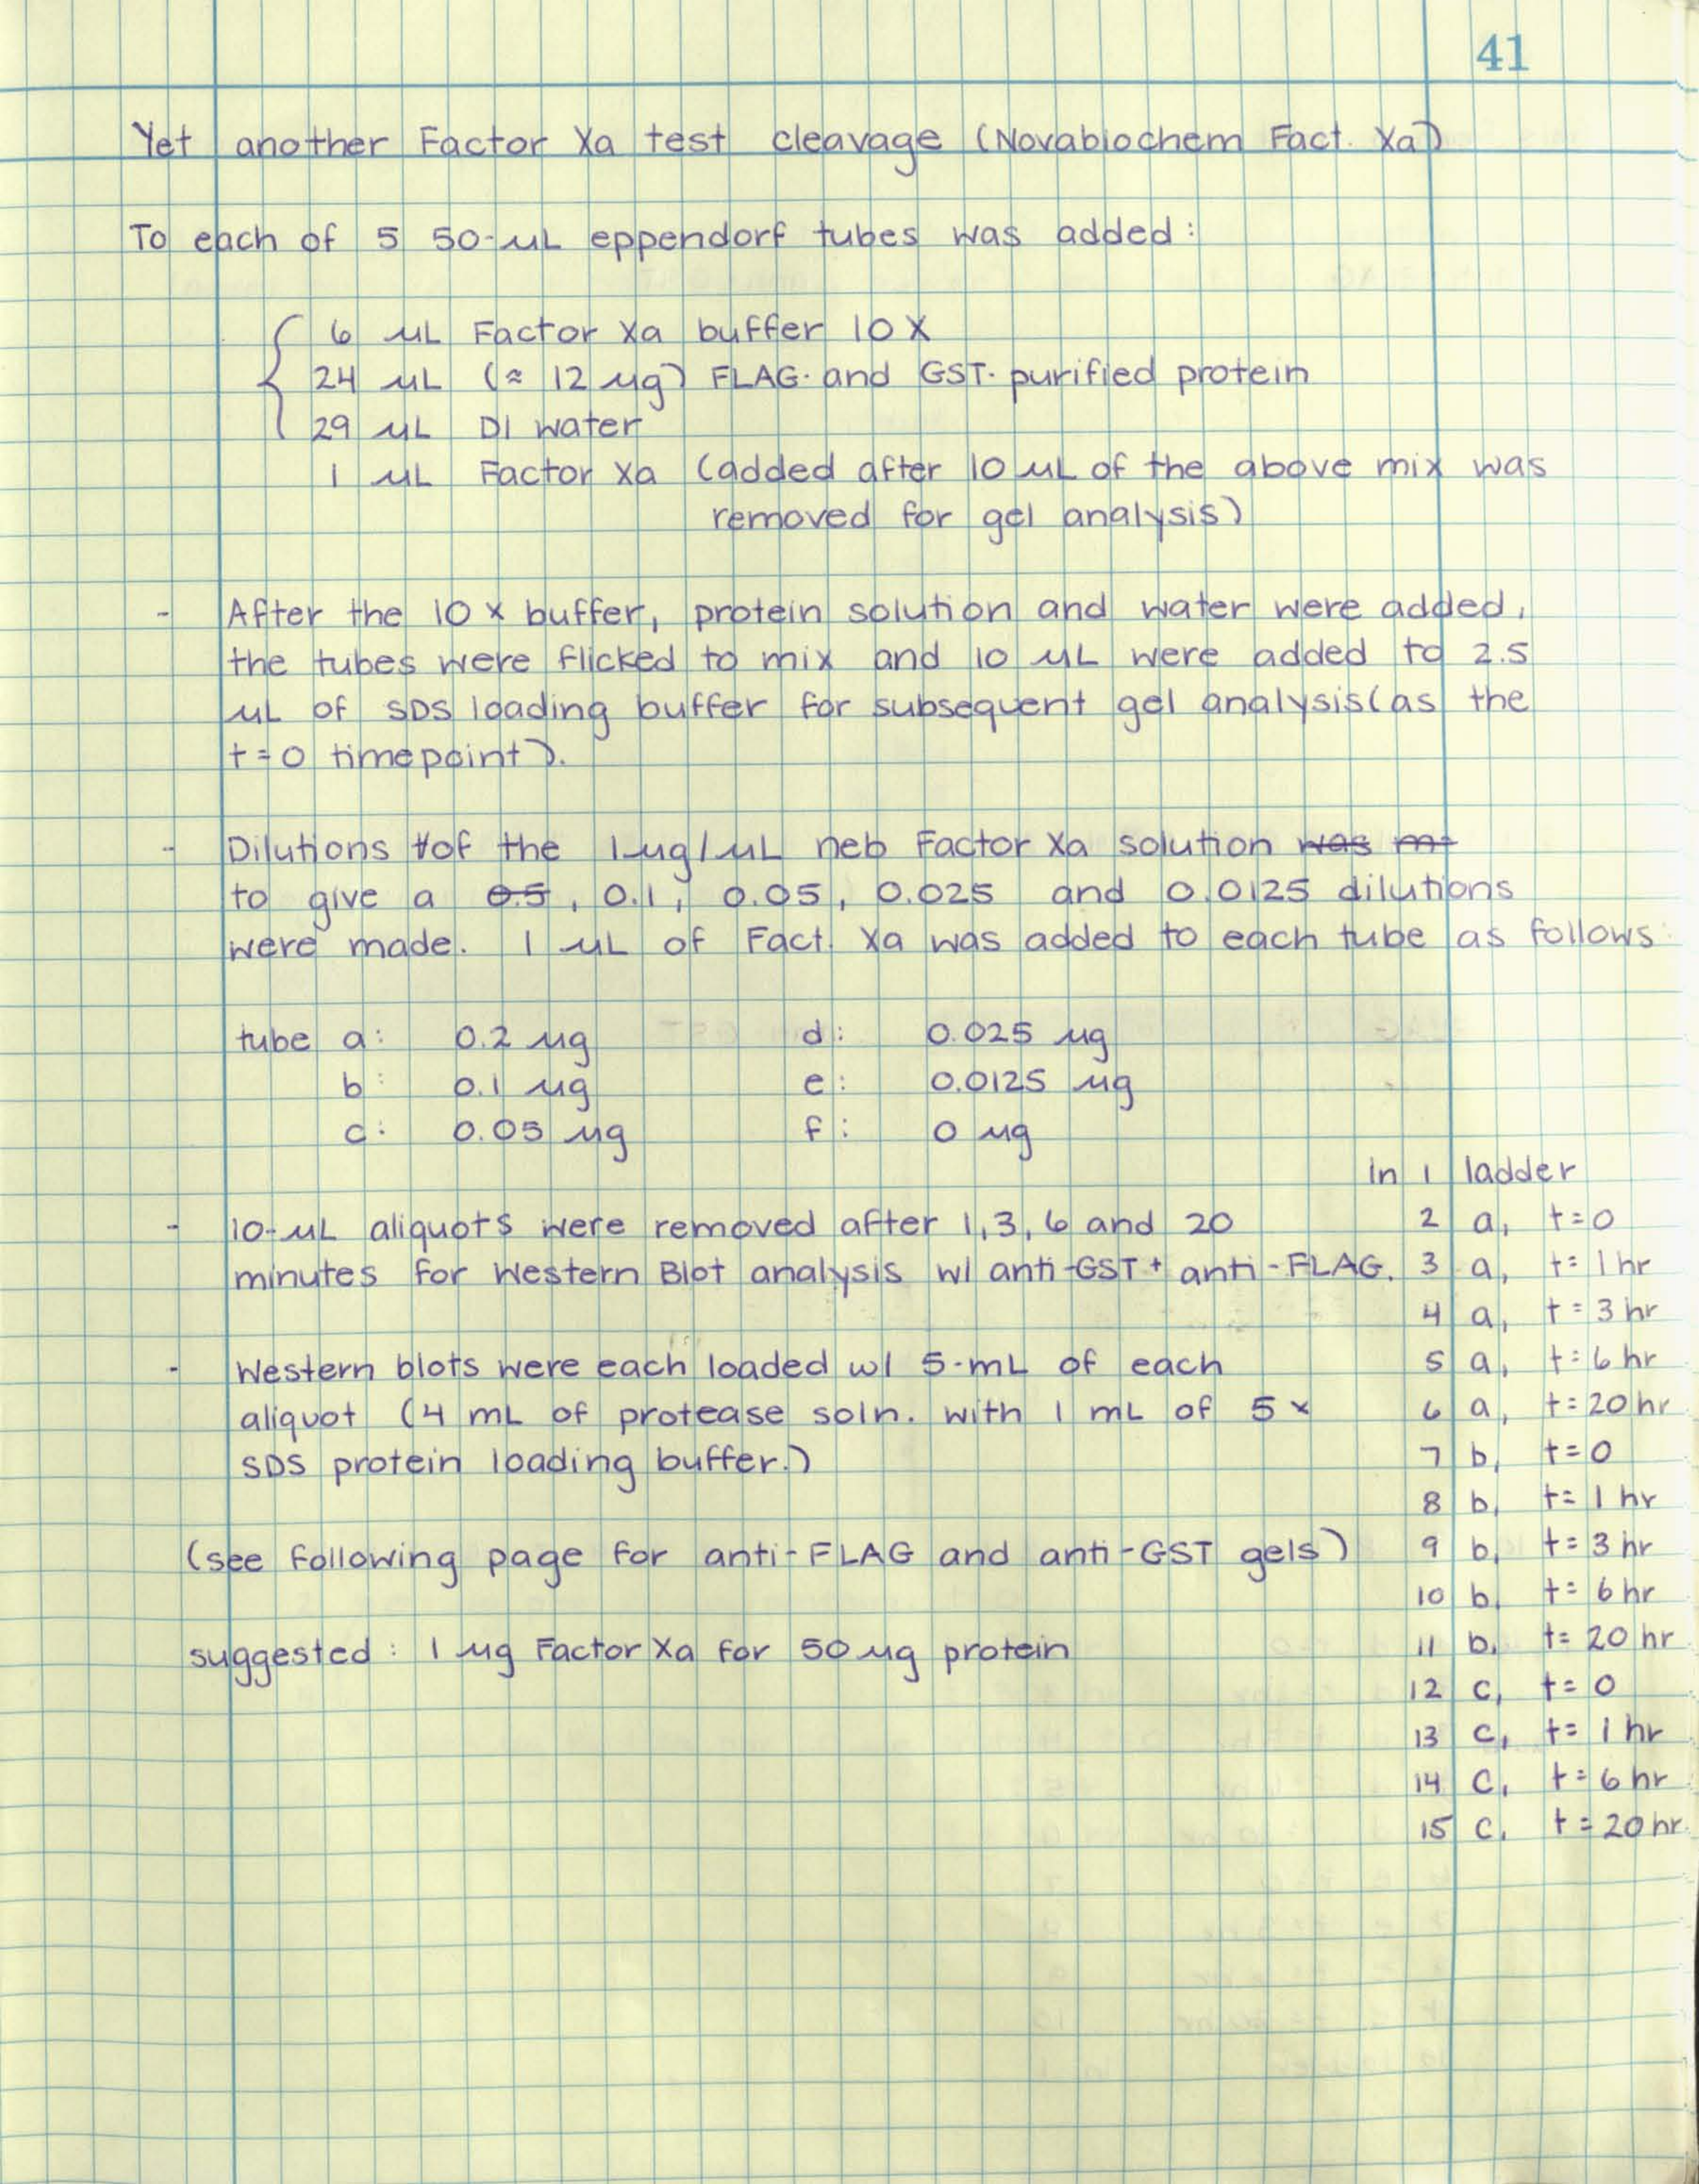 41
Yet another Factor Xa test cleavage (Novabiochem Fact. Xa)
To each of 5 50-µL eppendorf tubes was added:
6 µL Factor Xa buffer 10X
24 µL (≈ 12 µg) FLAG- and GST- purified protein
29 µL DI water
1 µL Factor Xa (added after 10 µL of the above mix was
removed for gel analysis)
- After the 10 x buffer, protein solution and water were added,
the tubes were flicked to mix and 10 µL were added to 2.5
µL of SDS loading buffer for subsequent gel analysis (as the
t=0 timepoint).
- Dilutions of the 1µg/µL neb Factor Xa solution was
to give a 0.5, 0.1, 0.05, 0.025 and 0.0125 dilutions
were made. 1 µL of Fact. Xa was added to each tube as follows
tube a: 0.2 µg d: 0.025 µg
b: 0.1 µg e: 0.0125 µg
c: 0.05 µg f: 0 µg
- 10-µL aliquots were removed after 1, 3, 6 and 20
minutes for Western Blot analysis w/ anti-GST + anti-FLAG.
- Western blots were each loaded w/ 5-mL of each
aliquot (4 mL of protease soln. with 1 mL of 5 x
SDS protein loading buffer.)
(see following page for anti-FLAG and anti-GST gels)
suggested: 1 µg Factor Xa for 50 µg protein
ln 1 ladder
2 a, t=0
3 a, t= 1 hr
4 a, t= 3 hr
5 a, t= 6 hr
6 a, t= 20 hr
7 b, t=0
8 b, t= 1 hr
9 b, t= 3 hr
10 b, t= 6 hr
11 b, t= 20 hr
12 c, t= 0
13 c, t= 1 hr
14 c, t= 6 hr
15 c, t= 20 hr.